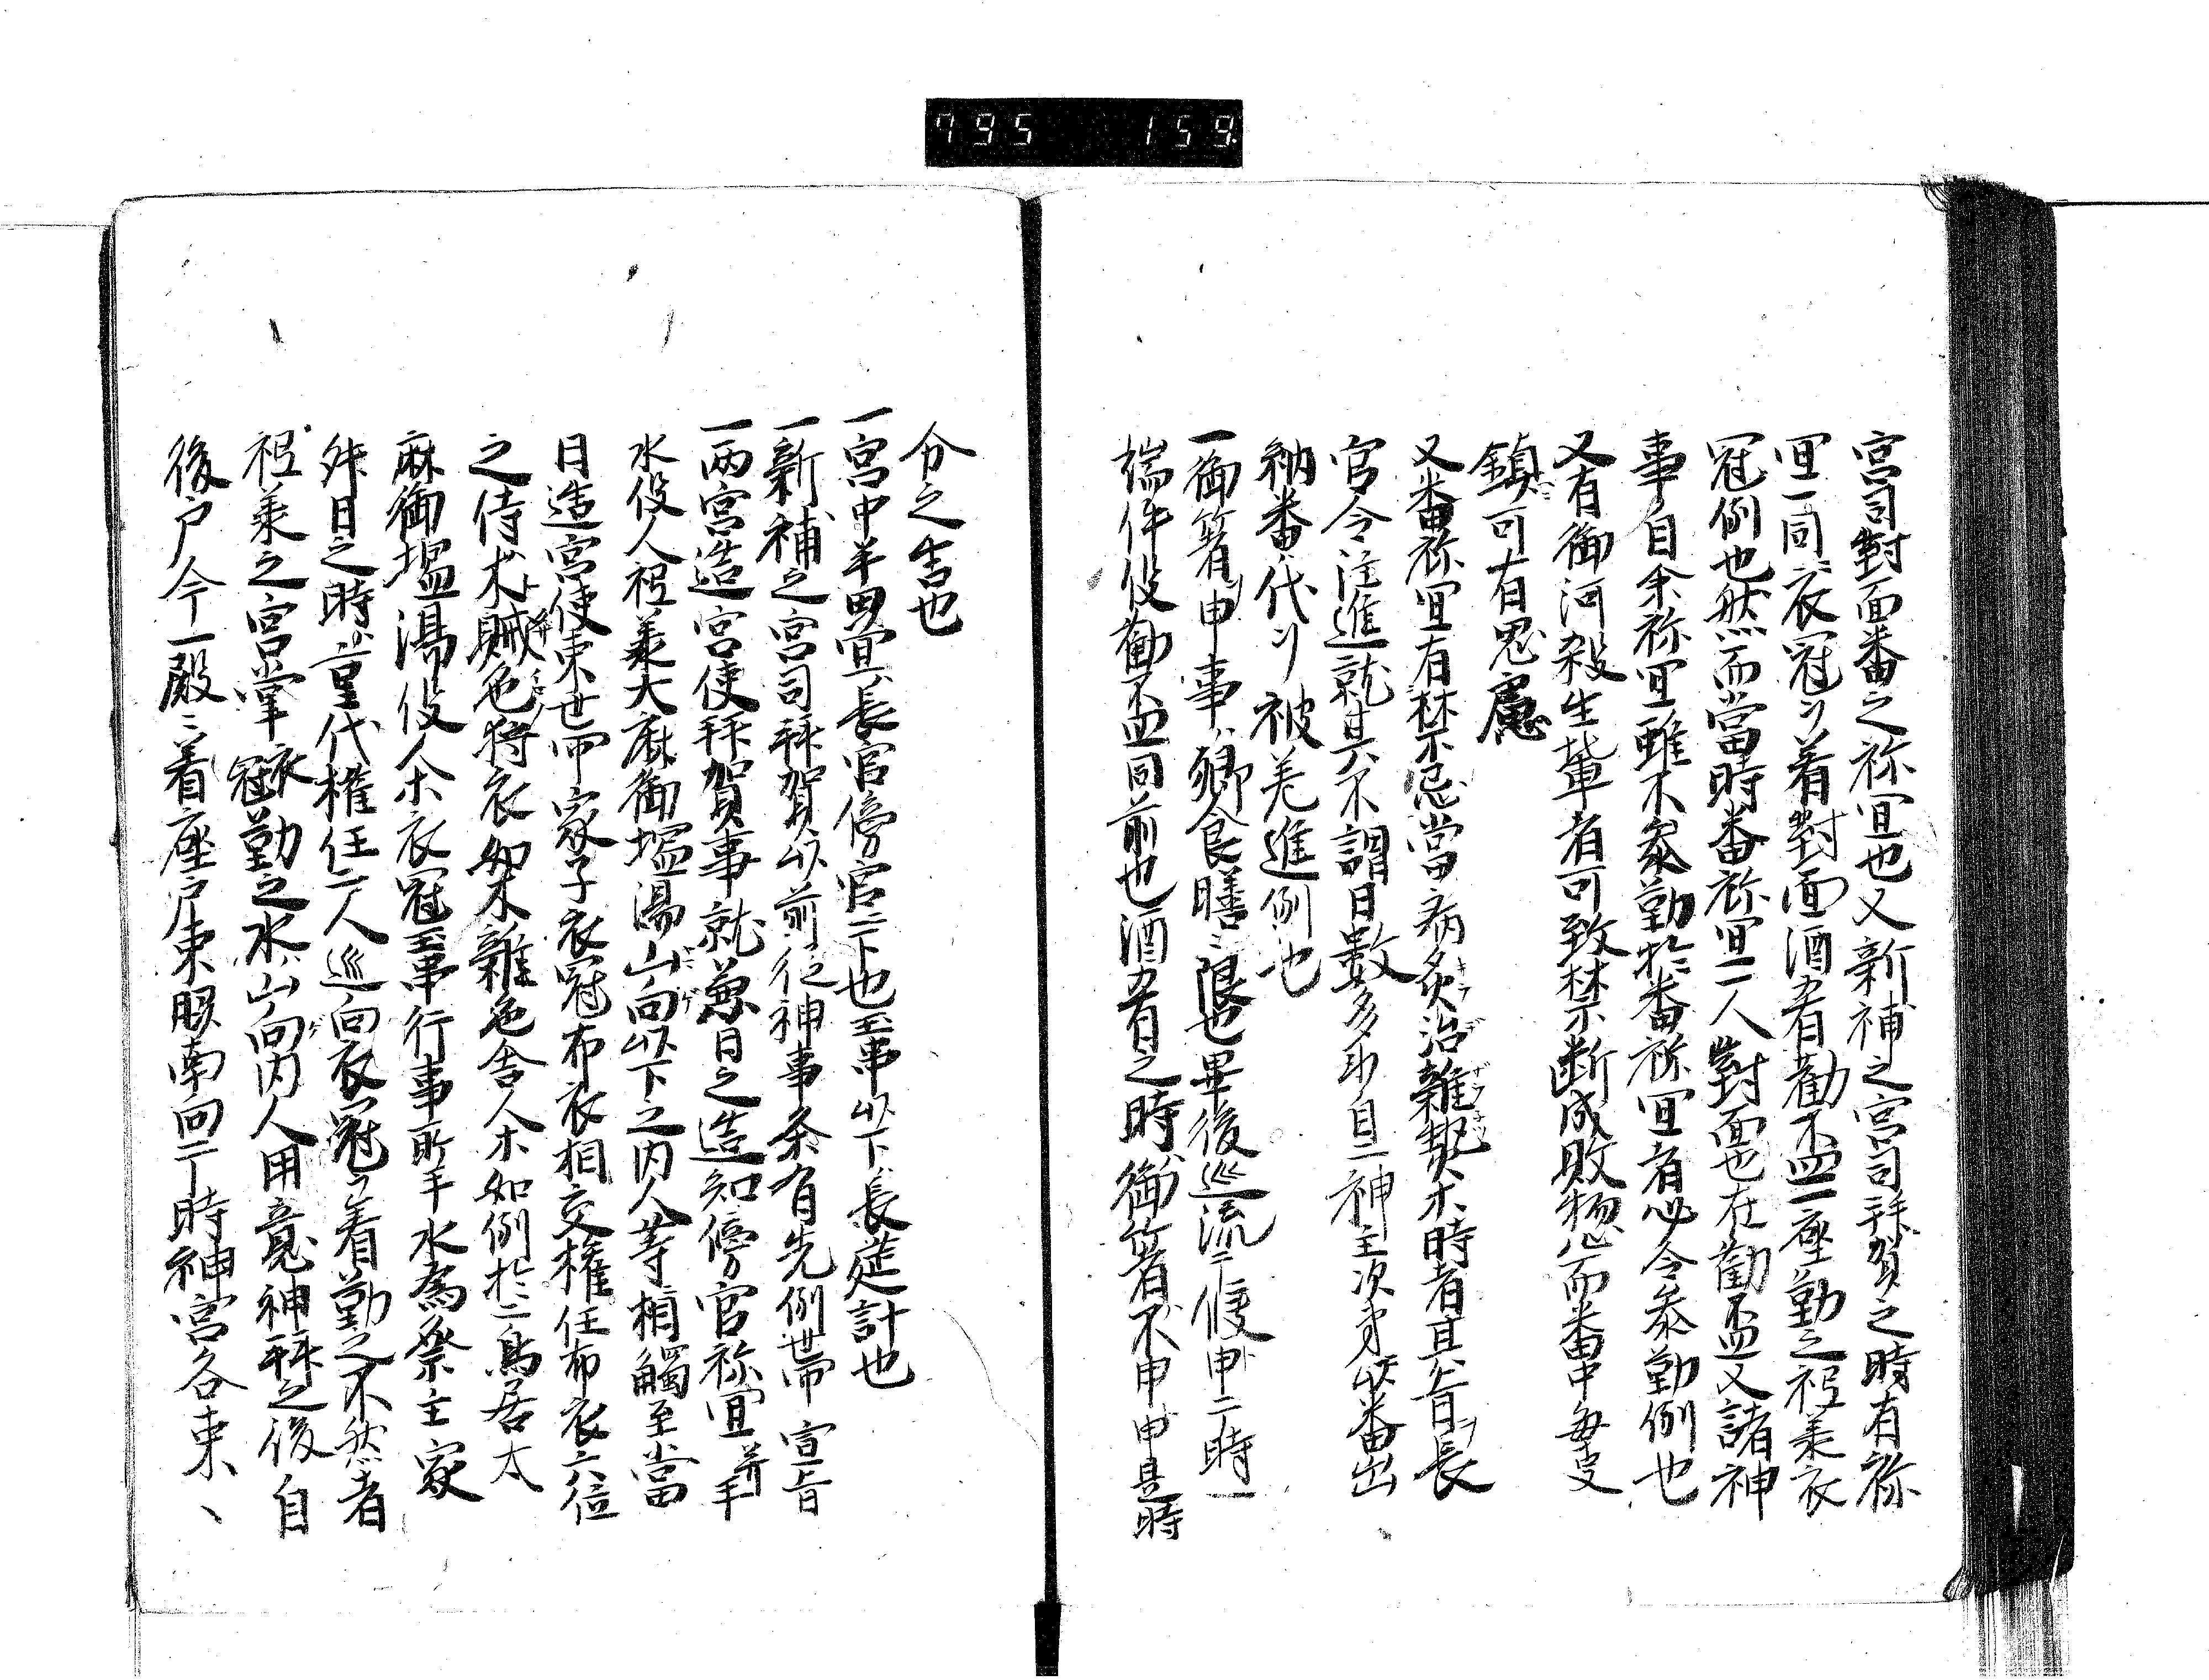 795 159
宮司對面番之祢宜也又新補之宮司拜賀之時有祢
宜一同衣冠ヲ着對面酒肴勧盃一座勤之祗羕衣
冠例也然而當時番祢宜一人對面也在勧盃又諸神
事自余祢宜雖不參勤於番祢宜者必令参勤例也
又有御河殺生輩者可致禁断成敗惣而番中毎支
鎮可有思慮
又番祢宜有禁忌當病灸治雜熱木時者其旨ヲ長
官令注進就其不謂日數多少自一神主次第以番出
納番代ヲ被差進例也
一御箸申事郷食膳ニ限也畢後巡流ニ復申二時一
揣件役勧盃同前也酒肴之時御箸不申申是時
分之告也
一宮中半畳長官傍官ニ下也玉串以下長莚計也
一新補之宮司拜賀以前従神事条有先例世帀宣旨
一兩宮造宮使拜賀事就兼日之造知傍官祢宜并手
水役人祗羕大麻御塩湯山向以下之内人等相觸至當
日造宮使束世帀家子衣冠布衣相交権任布衣六位
之侍木賊色狩衣如木雜色舎人木如例於二鳥居大
麻御塩湯役人木衣冠玉串行事所手水為祭主家
舛日之時ハ重代権任二人巡向衣冠ヲ着勤之不然者
祗羕之宮掌衣冠勤之水山向内人用意神拜之後自
後戸今一殿ニ着座戸東腋南向于時神宮各束